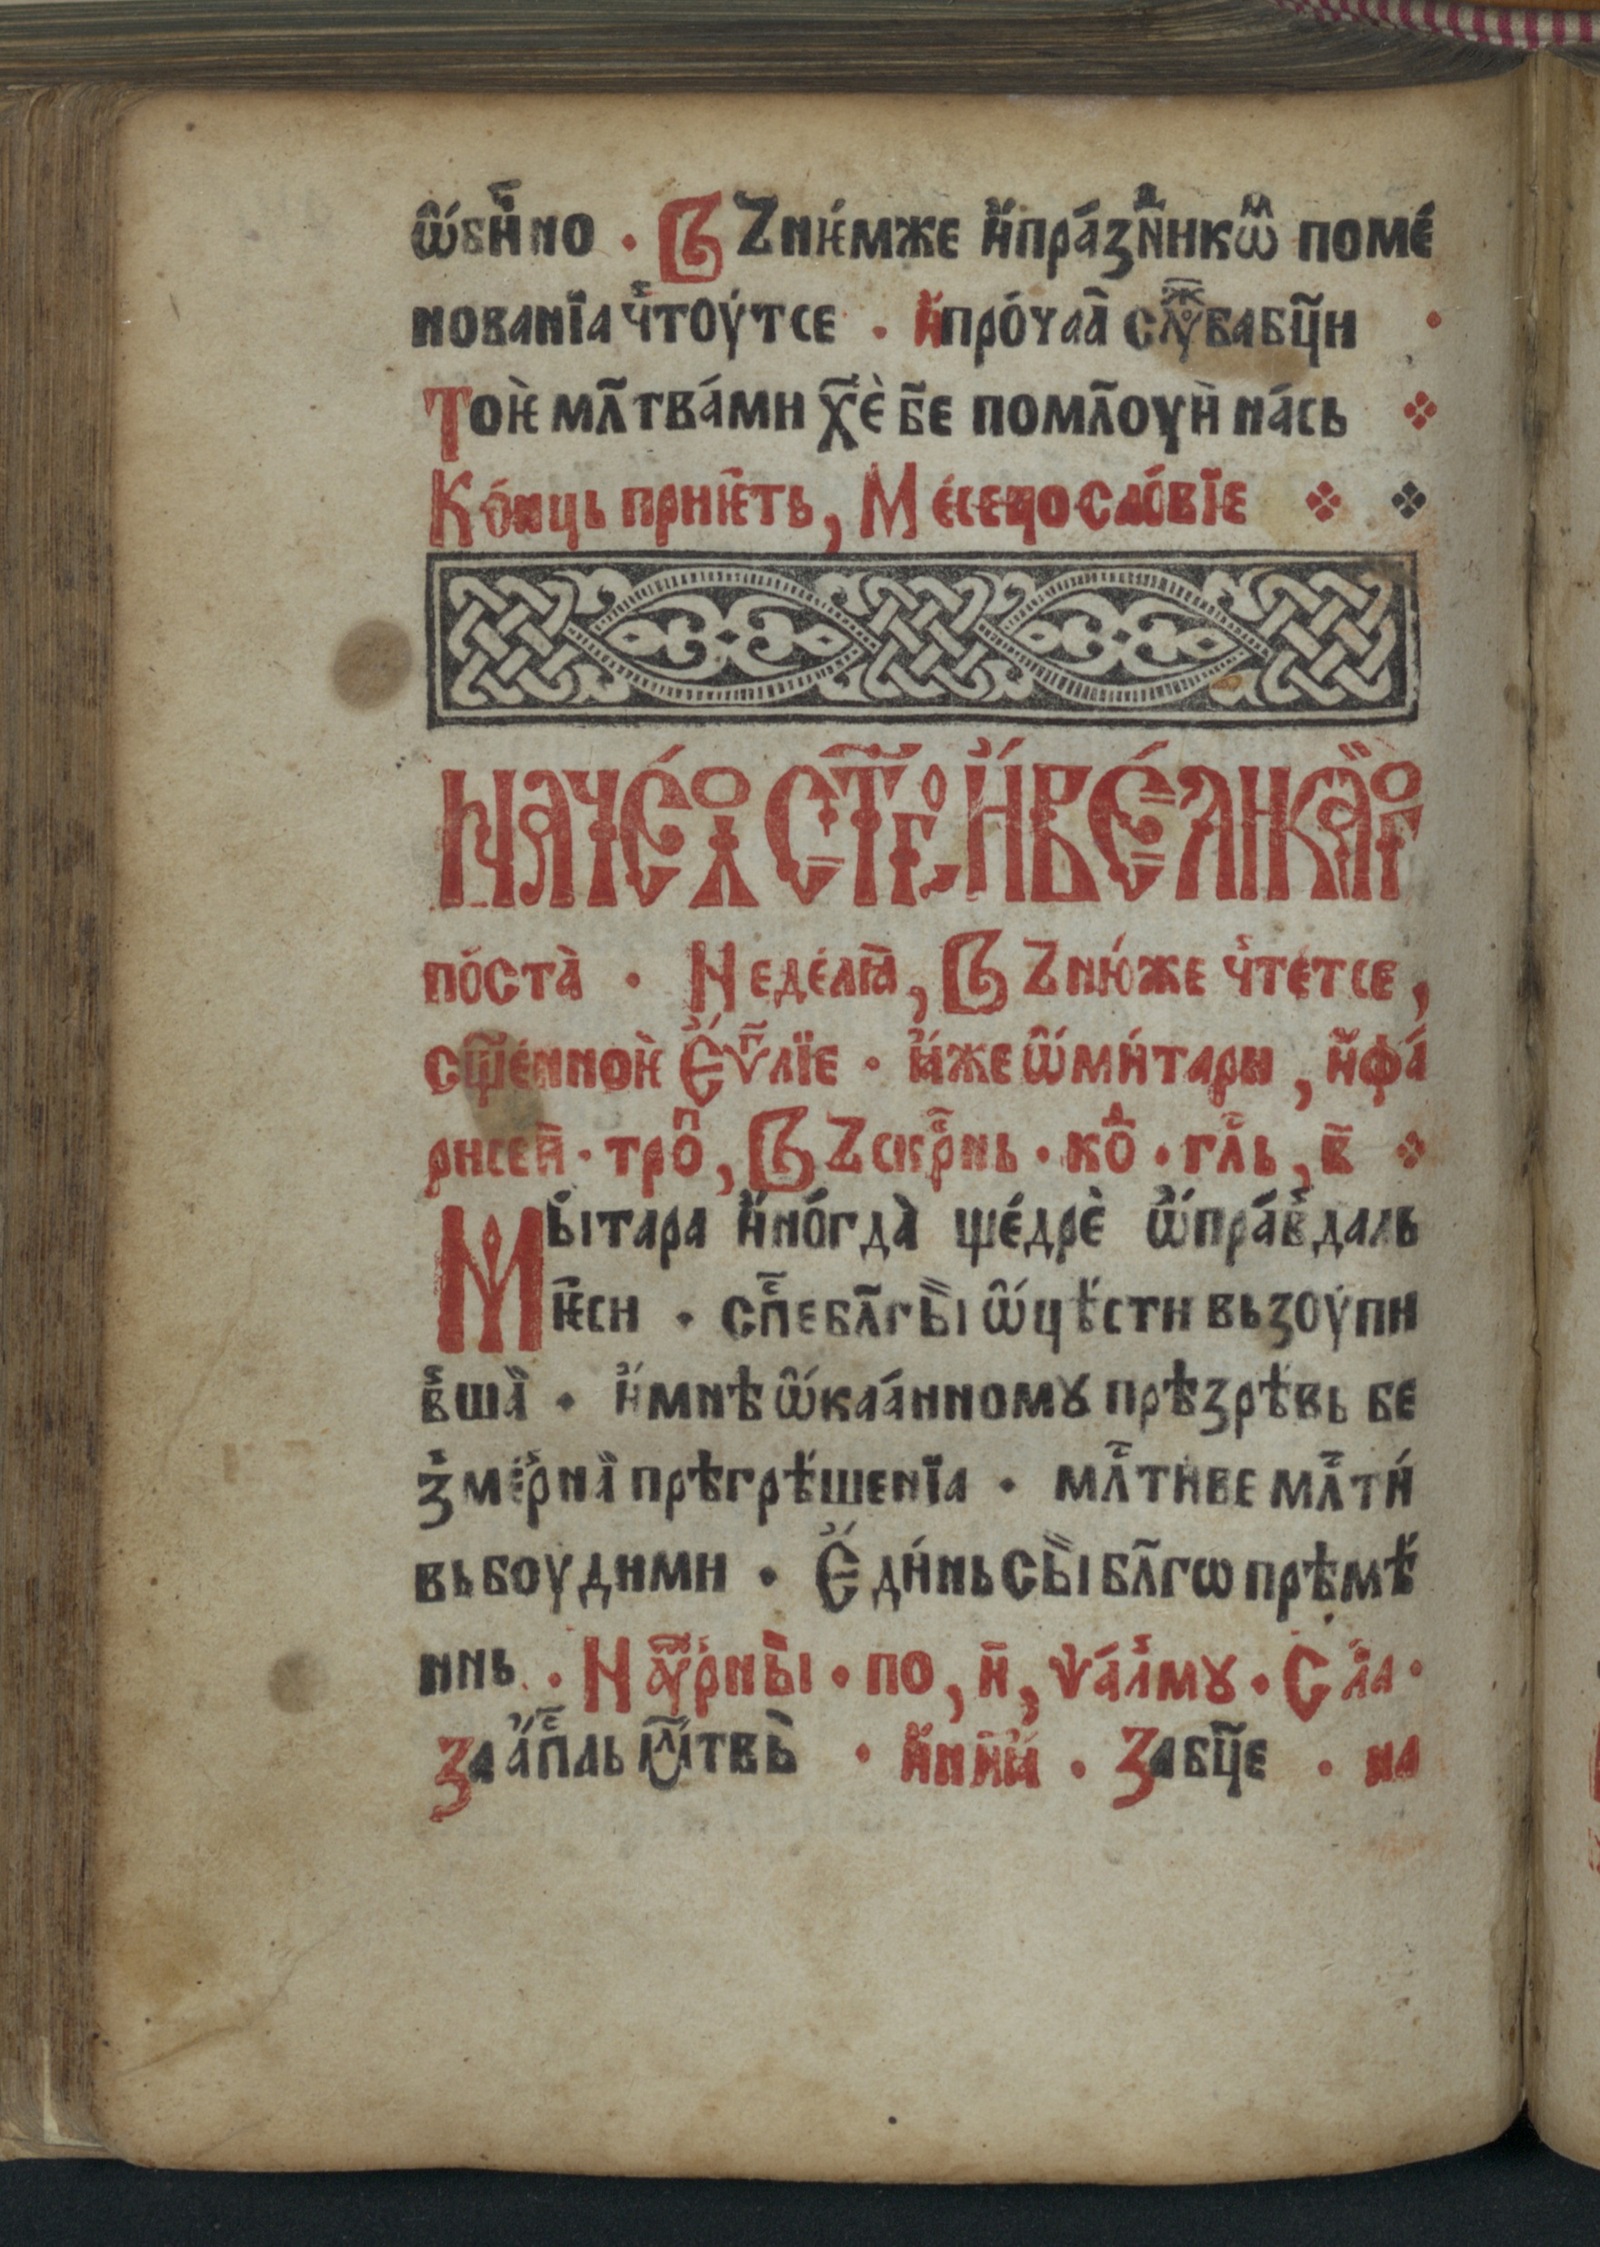 ѿви́нно · Вь нѥ́мже и҆пра́зⷣникѡⷨ поме́
нованїа чтоу́тсе · и҆про́чаа̀ слꙋⷤбабц҃и ·
Тоѥ̀ мл҃тва́ми х҃ѐ б҃е помл҃оуѝ на́сь
Ко́нць приѥ́ть, М е́сецосло́вїе
Наче́ло ст҃го, и҆ве́ликаа̀го
по́ста̀ · Неде́лꙗ̀, Вь ню́же чте́тсе,
сщ҃е́нноѥ̀ Є҆ѵⷢ҇лїе · и҆́же ѡ҆ми́тари, и҆фа́
рисеи҃ · троⷫ, Вь скр҇нь · коⷣ · гл҇ь, в҃
Мы́тара и҆но́гда̀ ще́дрѐ ѡ҆пра́вдаль
ѥ҆си · сп҇ебл҃гы̀ ѡ҆цѣ́сти вьзоу́пи
вша̀ · и҆мнѣ ѡ҆каа́нномꙋ прѣзрѣ́вь бе
змѣ́рнаа̀ прѣгрѣ́шенїа · мл҇тиве мл҇ти́
вьбоудими · Є҆ди́ньсы̀ бл҃гѡ прѣмѣ́
ннь · Н оу҆трⷭны̀ · по, н҃, ѱа́лмꙋ · Сла́ ·
За а҆пⷭ҇ль мл҃твы̀ · и҆нн҃ꙗ · За бц҃е · на